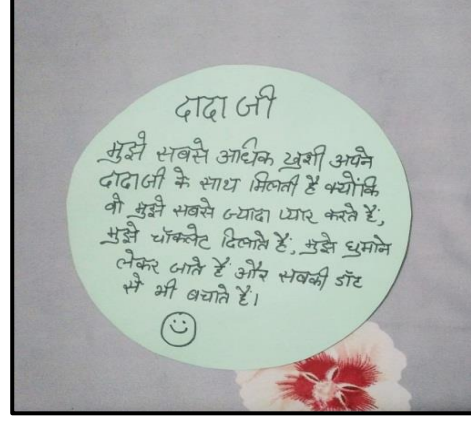 दादा जी
मुझे सबसे अधिक खुशी अपने
दादाजी के साथ मिलती है क्योंकि
वो मुझे सबसे ज्यादा प्यार करते हैं,
मुझे चॉकलेट दिलाते हैं, मुझे घुमाने
लेकर जाते हैं और सबकी डाँट
से भी बचाते हैं।